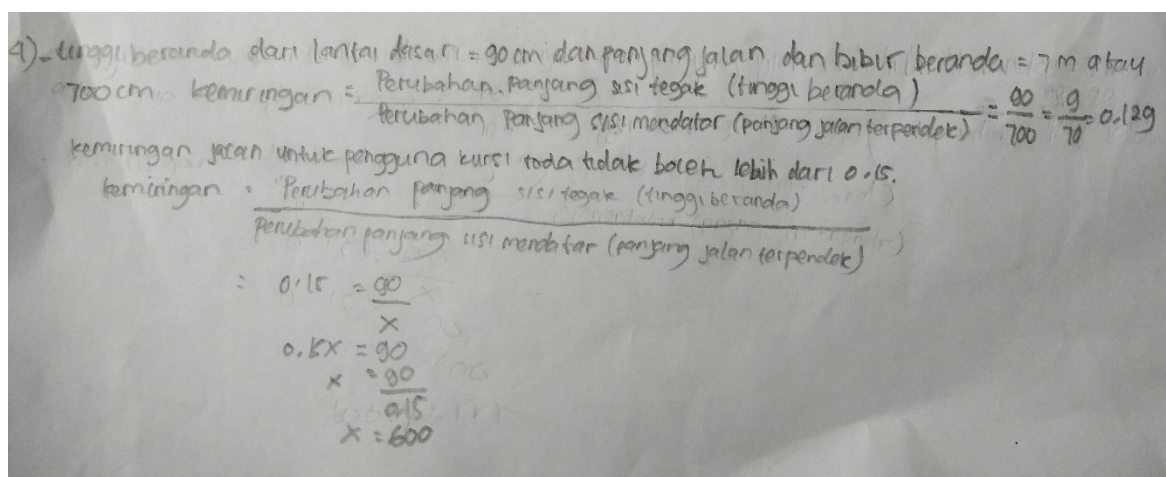 4)-tinggi beranda dari lantai dasar = 90 cm dan panjang jalan dan bibir beranda = 7 m atau
700 cm kemiringan = Perubahan. Panjang sisi tegak (tinggi beranda) / Perubahan Panjang sisi mendatar (panjang jalan terpendek) = 90/700 = 9/70 = 0.129
kemiringan jalan untuk pengguna kursi roda tidak boleh lebih dari 0.15.
kemiringan = Perubahan panjang sisi tegak (tinggi beranda)
Perubahan panjang sisi mendatar (panjang jalan terpendek)
= 0.15 = 90
x
0.15x = 90
x = 90
0.15
x = 600